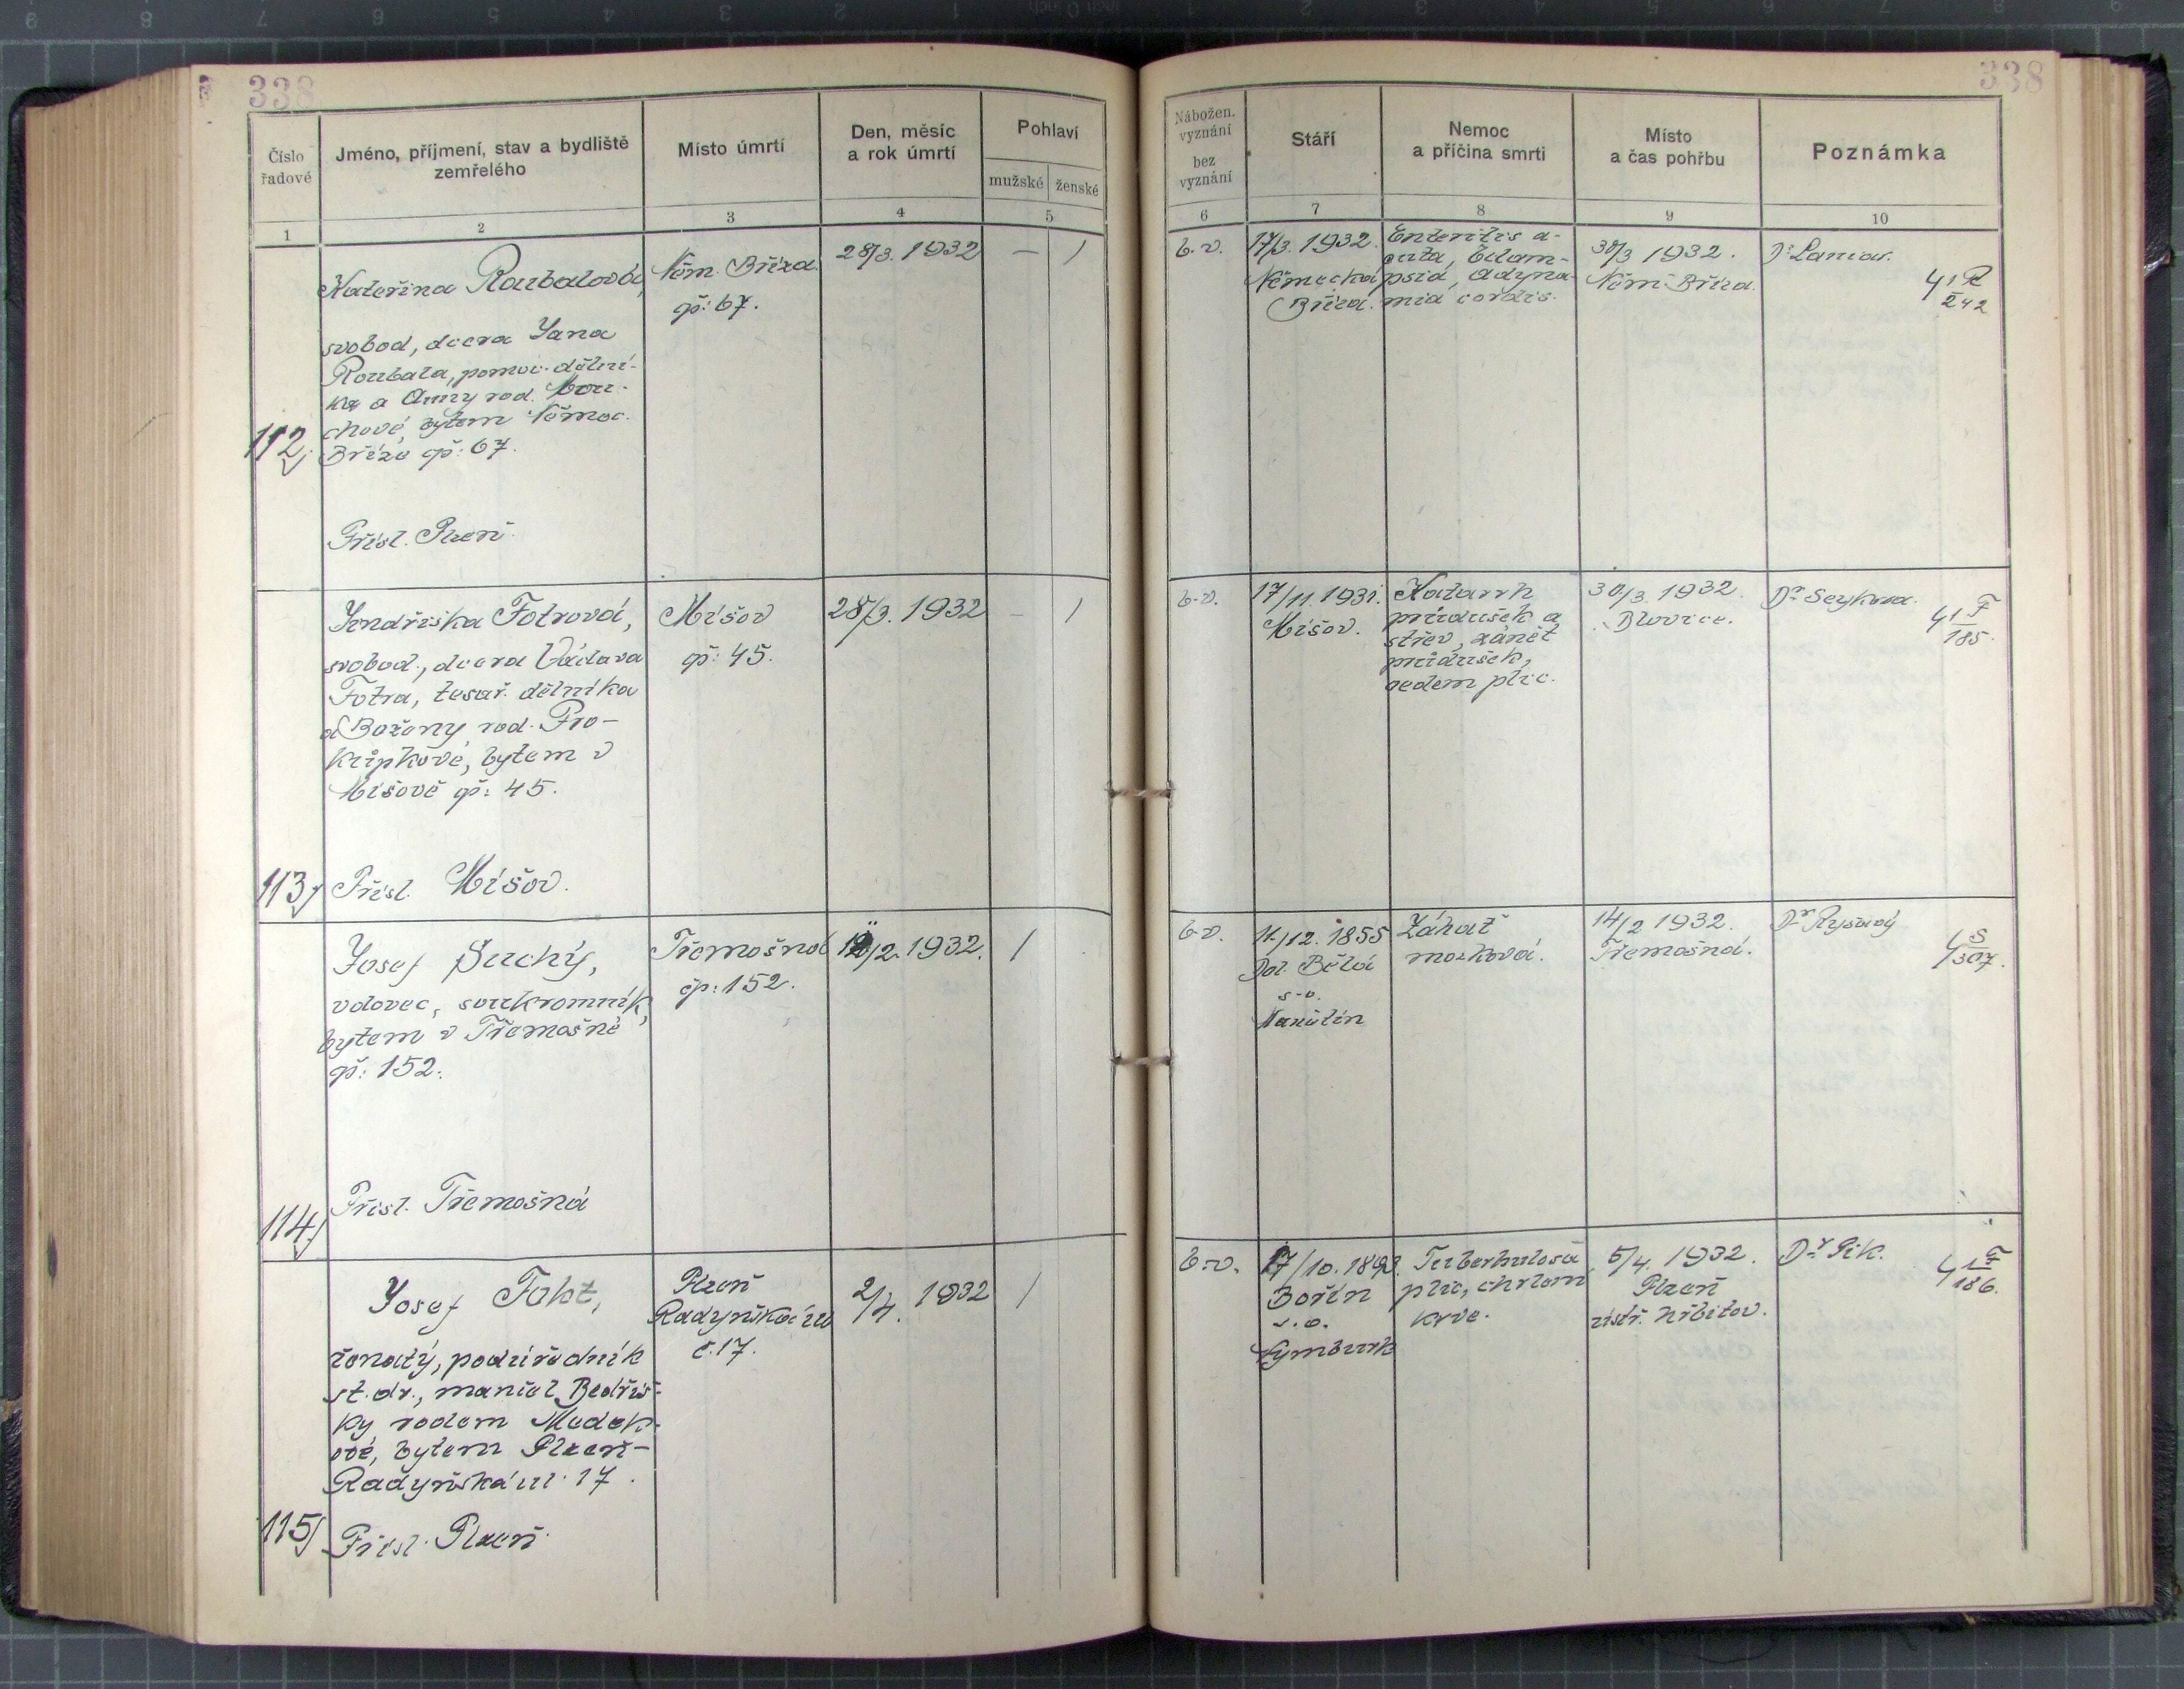 338
Číslo řadové
Jméno, příjmení, stav a bydliště zemřelého
Místo úmrtí
Den, měsíc a rok úmrtí
Pohlaví
mužské ženské
1 2 3 4 5
112
Kateřina Roubalová,
svobod, dcera Jana
Roubala, pomoc. dělní-
ka a Anny rod. Mou-
chové, bytem Němec.
Bříze čp: 67.
Přísl. Plzeň.
Něm. Bříza
čp: 67.
28/3. 1932
— 1
113
Jindřiška Fotrová,
svobod., dcera Václava
Fotra, tesař. dělníka
a Boženy rod. Pro-
kůpkové, bytem v
Míšově čp: 45.
Přísl. Míšov.
Míšov
čp: 45.
28/3. 1932
— 1
114
Josef Suchý,
vdovec, soukromník,
bytem v Třemošné
čp: 152.
Přísl. Třemošná
Třemošná
čp: 152.
/2. 1932.
1
115
Josef
ženatý, podúředník
st. dr., manžel Bedřiš-
ky rodem
ové, bytem Plzeň-
Radyňská ul. 17.
Přísl. Plzeň.
Plzeň
Radyňská ul
č. 17.
2/4. 1932
1
338
Nábožen. vyznání
bez vyznání
Stáří
Nemoc a příčina smrti
Místo a čas pohřbu
Poznámka
6 7 8 9 10
b.v.
17/3. 1932.
Německá
Bříza.
Enteritis a-
cuta, Eclam-
psia, Adyna-
mia cordis.
30/3 1932.
Něm. Bříza.
R
242
b.v.
17/11. 1931.
Míšov.
Katarrh
průdušek a
střev, zánět
průdušek,
oedem plic.
30/3. 1932.
Blovice.
Dr Seykora.
F
185.
b.v.
11/12. 1855
Dol. Bělá
s.o.
Manětín
Záhať
mozková.
14/2 1932.
Třemošná.
Dr Rysavý
S
307.
b.v.
17/10.
Bořín
s.o.
Nymburk
Tuberkulosa
plic, chrlení
krve.
5/4. 1932.
Plzeň
ústř. hřbitov.
Dr Pik.
F
186.